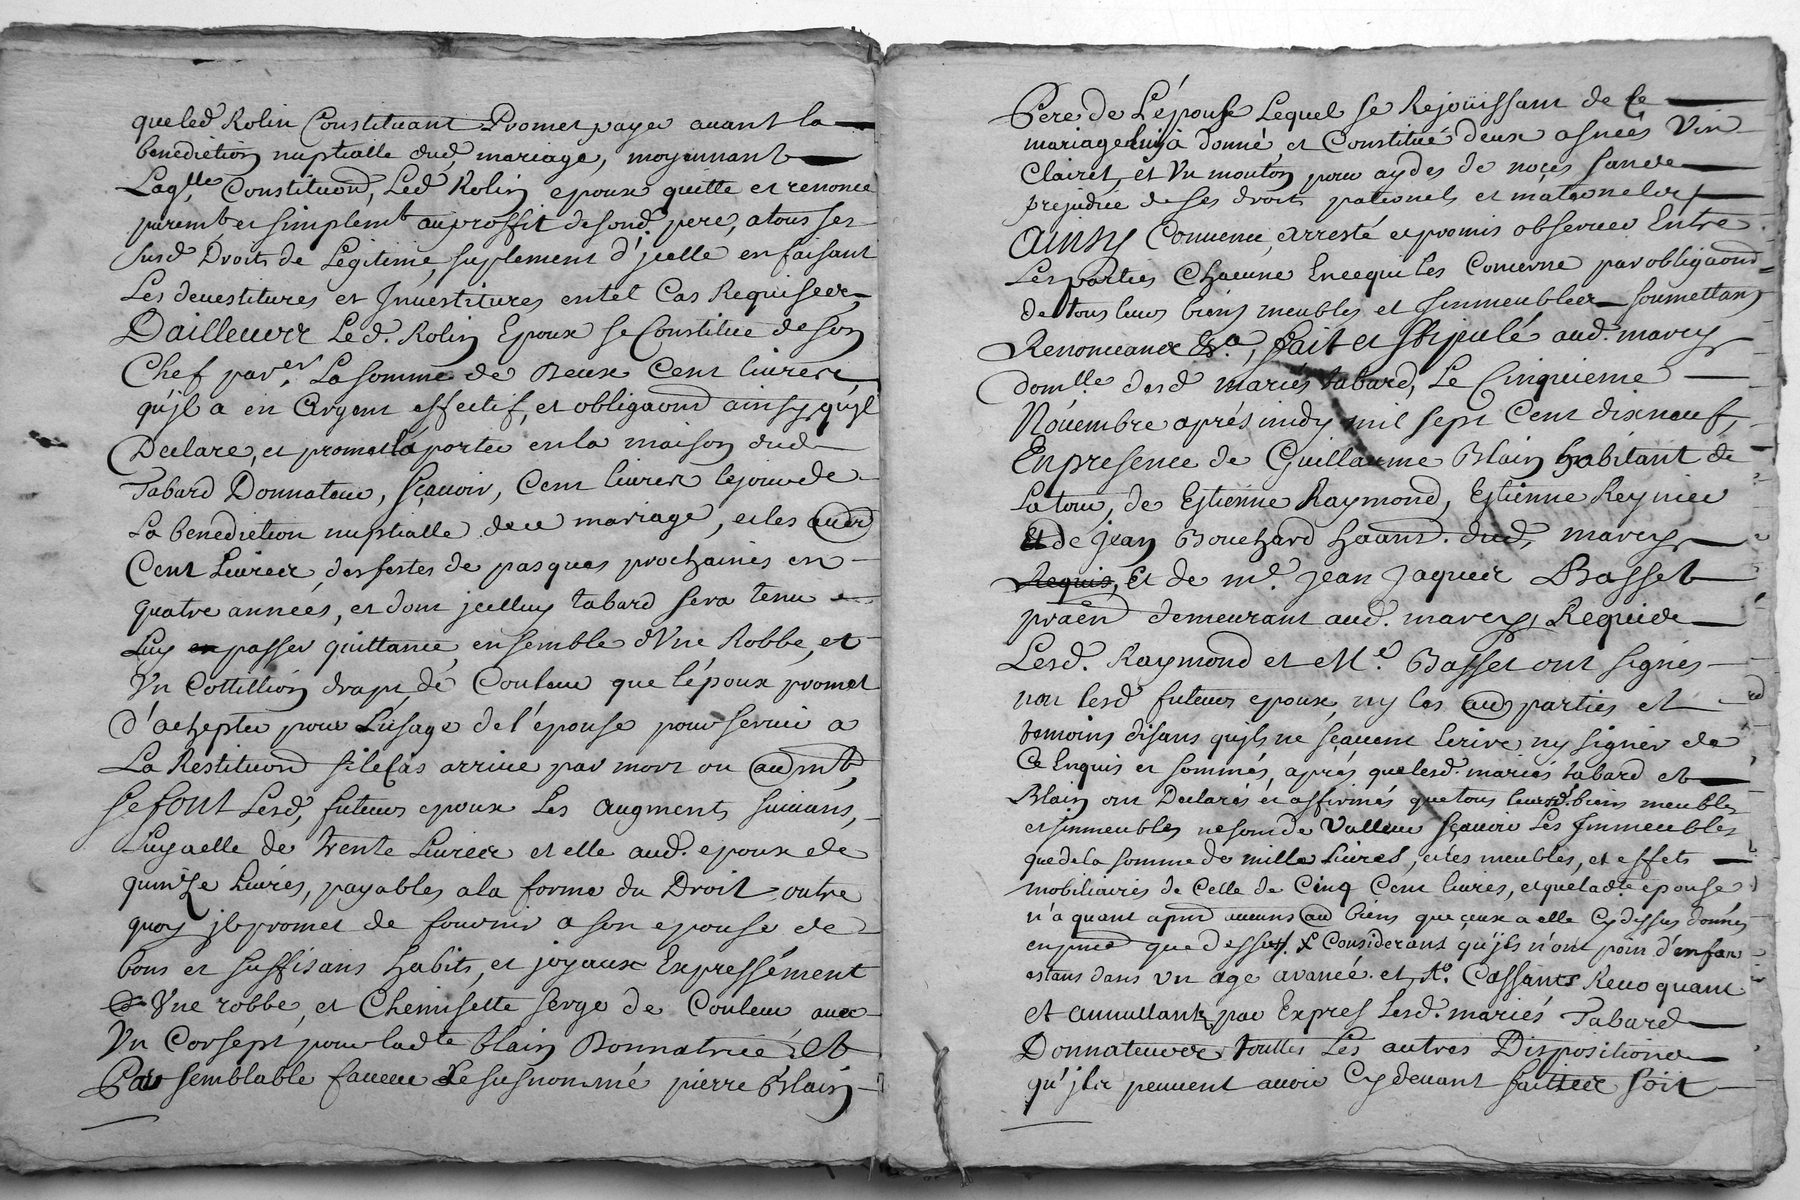 que led Rolin Constituant Promet payer auant la
benediction nuptialle dud, mariage, moyennant
Laqlle Constituon, Led Rolin epoux quitte et renonce
puremt et simplemt au proffit de sond. pere, a tous ses
susd Droits de Légitime, suplement d'jcelle en faisant
Les deuestitures et Jnuestitures en tel Cas Requises,
Dailleurs Led. Rolin Epoux se Constitue de son
Chef par er. La somme de Deux Cent liures,
qu'jl a en Argent effectif, et obligaond ainsy qu'jl
Declare, et promet la porter en la maison dud
Tabard Donnateur, sçauoir, Cent liures le jour de
La benediction nuptialle de ce mariage, et les aud
Cent Liures, des festes de pasques prochaines en
quatre années, et dont jcelluy tabard sera tenu
Luy en passer quittance, ensemble d'Vne Robbe, et
Vn Cottillion drapt de Couleur que l'époux promet
d'achepter pour L'usage de l'épouse pour seruir a
La Restituond si le Cas arriue par mort ou audmt,
se font Lesd, futeurs epoux Les augments suiuans,
Luy a elle de trente Liures et elle aud. epoux de
quinze Liures, payables a la forme du Droit, outre
quoy jl promet de fournir a son epouse de
bons et suffisans habits, et joyaux Expressément
Vne robbe, et Chemisette serge de Couleur auec
Vn Corsept, pour ladte blain Donnatrice, Et
Par semblable faueur Le susnommé pierre Blain
Pere de L'épouse Lequel se Rejoüissant de Ce
mariage luy à donné, et Constitué deux asnées Vin
Clairet, et Vn mouton pour aydes de noçes sans
prejudice de ses droits paternels et maternels,
Ainsy Conuenu, arresté et promis obseruer Entre
Les parties Chacune En ce qui les Concerne par obligaond
de tous leurs biens meubles et Jmmeubles soumettans
Renonceans &a, fait et stipulé aud. marcy
domlle desd mariés tabard, Le Cinquieme
Nouembre aprés midy mil sept Cent dixneuf,
En presence de Guillaume Blain habitant de
La tour, de Estienne Raymond, Estienne Reynier
Et de jean Bouchard haant. dud, marcy
Requis, Et de me. jean jaques Basset
praen demeurant aud. marcy, Requis
Lesd. Raymond et Me. Basset ont signés
non lesd futeurs epoux, ny les aud parties et
temoins disans qu'jls ne sçauent Ecrire ny signer de
Ce Enquis et sommés, aprés que lesd. mariés tabard et
Blain ont Declarés et affirmés que tous leursd. biens meubles
et jmmeubles ne sont de Valleur sçauoir Les Jmmeubles
que de la somme de mille Liures, et les meubles, et effets
mobiliaires de Celle de Cinq Cent liures, et que ladte epouse
n'a quant apnt aucuns aud biens que ceux a elle Cy dessus donnés
en pnce que dessus. X Considerant qu'jls n'ont poin d'enfan
estans dans Vn age avancé. et Cassants Reuoquant
et annullant, par Expres Lesd. mariés Tabard
Donnateurs, touttes Les autres Dispositions
qu'jls peuuent auoir Cy deuant faittes soit